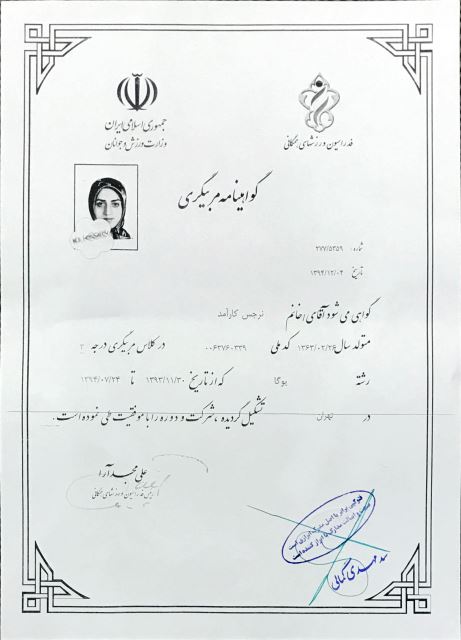 جمهوری اسلامی ایران
وزارت ورزش و جوانان
فدراسیون ورزشهای همگانی
گواهینامه مربیگری
شماره: ۲۷۷/۵۳۵۹
تاریخ ۱۳۹۴/۱۲/۰۴
گواهی می شود آقای/خانم نرجس کارآمد
متولد سال ۱۳۶۳/۰۲/۲۶ کد ملی ۰۰۶۳۷۶۰۳۳۹ در کلاس مربیگری درجه ۳
رشته یوگا که از تاریخ ۱۳۹۳/۱۱/۳۰ تا ۱۳۹۴/۰۷/۲۴
در تهران تشکیل گردیده ، شرکت و دوره را با موفقیت طی نموده است.
علی مجدآرا
رئیس فدراسیون ورزشهای همگانی
فتوکپی برابر با اصل
سید مهدی کمالی